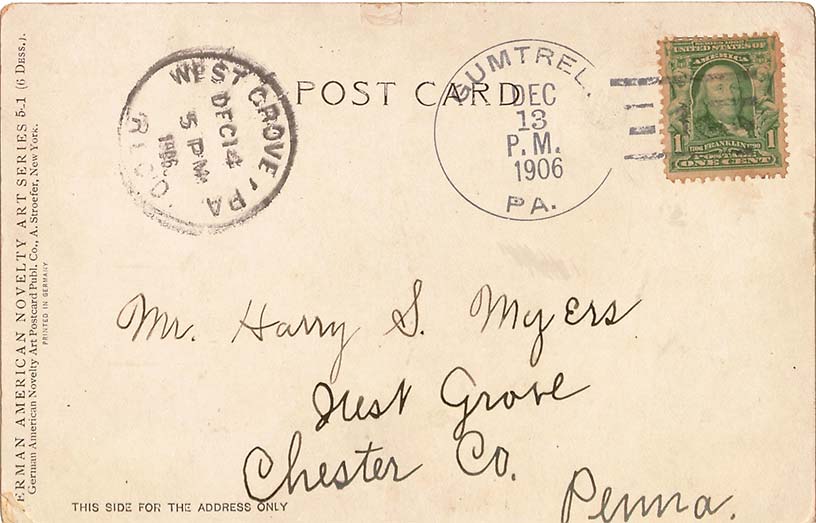 POST CARD
WEST GROVE, PA
DEC 14
5 PM
1906
REC'D
GUMTREE.
DEC
13
P. M.
1906
PA.
UNITED STATES OF
AMERICA
1 FRANKLIN 1
POSTAGE
ONE CENT
Mr. Harry S. Myers
West Grove
Chester Co.
Penna.
THIS SIDE FOR THE ADDRESS ONLY
ERMAN AMERICAN NOVELTY ART SERIES 5-1 (6 DESS.).
German American Novelty Art Postcard Publ. Co., A. Stroefer, New York.
PRINTED IN GERMANY